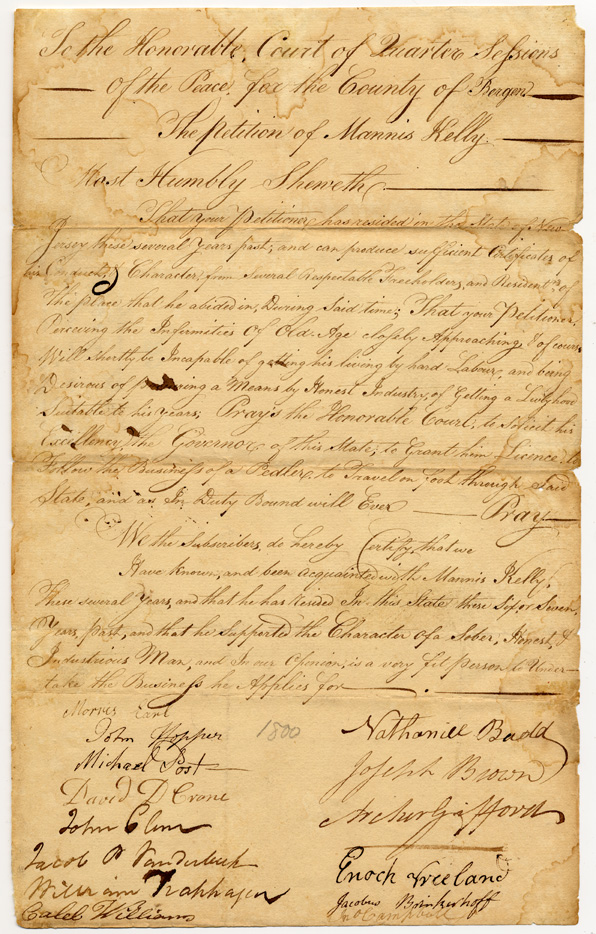 To the Honorable, Court of Quarter Sessions
of the Peace, for the County of Bergen
The Petition of Mannis Kelly
Most Humbly Sheweth
That your Petitioner has resided in the State of New
Jersey these several Years past, and can produce sufficient Certificates of
his Conduct & Character, from Several Respectable Freeholders, and Residents of
the place that he abided in, During Said time; That your Petitioner,
Perceiving the Infirmities Of Old Age closely Approaching & of course
Will Shortly be Incapable of getting his living by hard Labour, and being
Desirous of a Means by Honest Industry, of Getting a Livlyhood
Suitable to his Years; Pray's the Honorable Court, to Solicit his
Excellency, the Governor, of this State, to Grant him Licence to
Follow the Business of a Pedler, to Travel on foot through Said
State, and as In Duty Bound will Ever Pray
We the Subscribers, do hereby Certify, that we
Have known, and been acquainted with Mannis Kelly,
These several Years, and that he has resided In this State these Six or Seven
Years, past, and that he Supported the Character of a Sober, Honest, &
Industrious Man, and In our Opinion, is a very fit person to Under-
take the Business he Applies for
Morris Earl
John Hopper
1800
Michael Post
David D Crane
John
Jacob
William Traphagen
Caleb Williams
Nathaniel Budd
Joseph Brown
Archer Gifford
Enoch Vreeland
Jacobus Brinkerhoff
Campbell